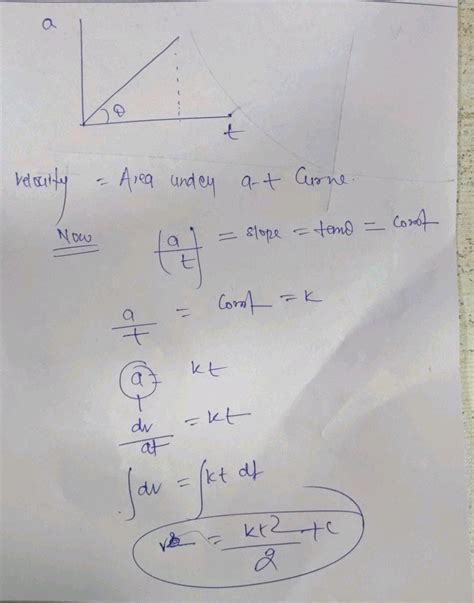 a
θ
t
Velocity = Area under a-t Curve.
Now (a/t) = slope = tanθ = const
a/t = const = k
a = kt
dv/dt = kt
∫dv = ∫kt dt
v = kt2/2 + c